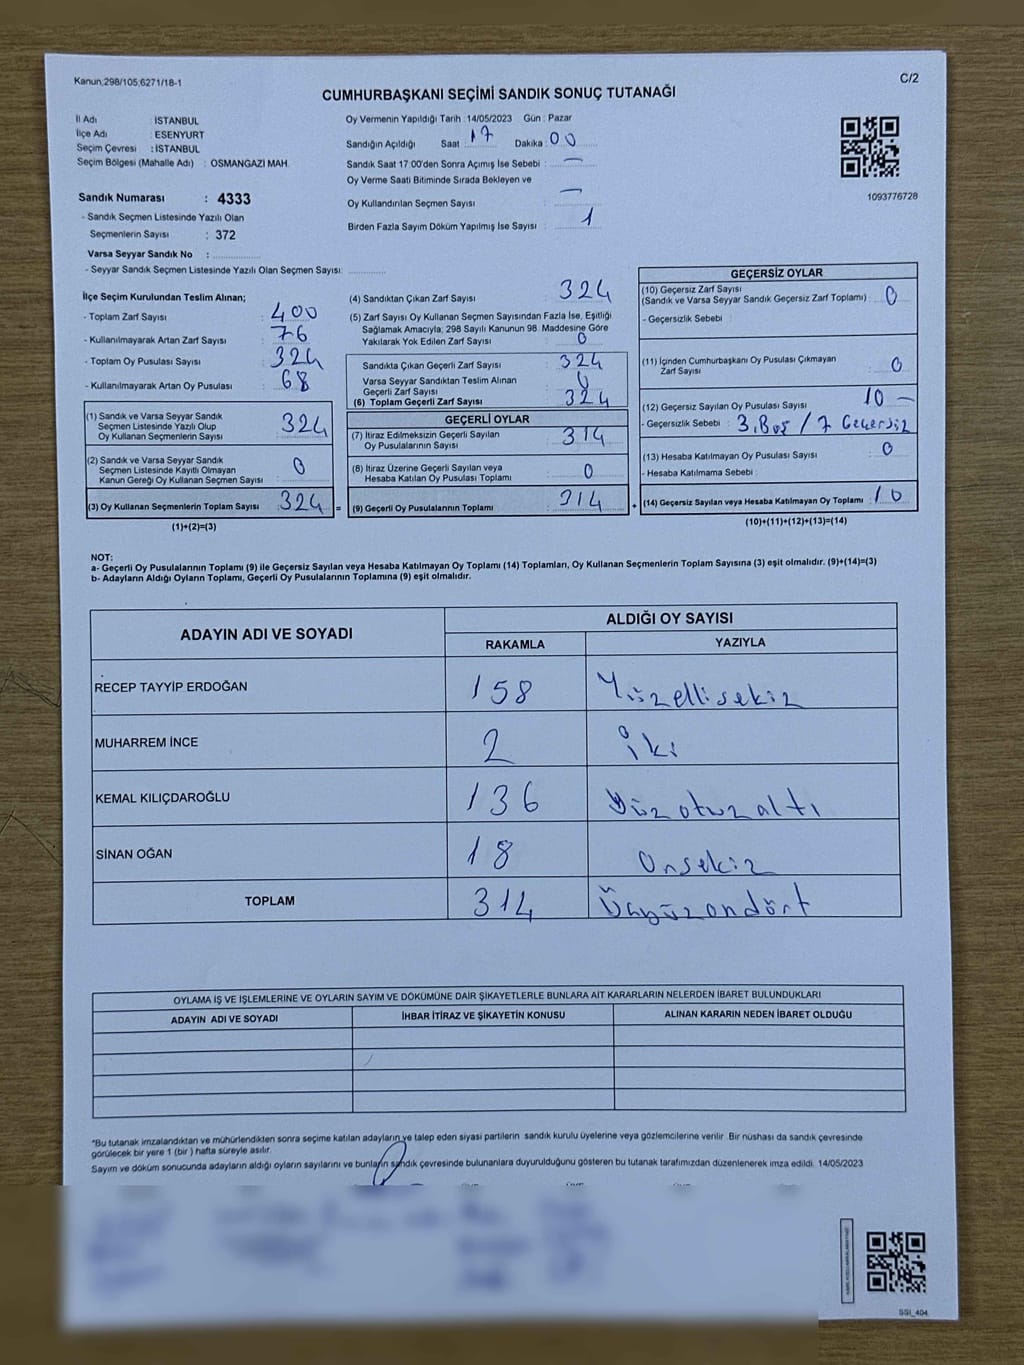 Kanun:298/105,6271/18-1
C/2
CUMHURBAŞKANI SEÇİMİ SANDIK SONUÇ TUTANAĞI
İl Adı : İSTANBUL
İlçe Adı : ESENYURT
Seçim Çevresi : İSTANBUL
Seçim Bölgesi (Mahalle Adı) : OSMANGAZİ MAH.
Sandık Numarası : 4333
- Sandık Seçmen Listesinde Yazılı Olan
Seçmenlerin Sayısı : 372
Varsa Seyyar Sandık No :
- Seyyar Sandık Seçmen Listesinde Yazılı Olan Seçmen Sayısı:
Oy Vermenin Yapıldığı Tarih :14/05/2023 Gün : Pazar
Sandığın Açıldığı Saat : 17 Dakika : 00
Sandık Saat 17.00'den Sonra Açımış İse Sebebi : —
Oy Verme Saati Bitiminde Sırada Bekleyen ve
Oy Kullandırılan Seçmen Sayısı : —
Birden Fazla Sayım Döküm Yapılmış İse Sayısı : 1
1093776728
İlçe Seçim Kurulundan Teslim Alınan;
- Toplam Zarf Sayısı : 400
- Kullanılmayarak Artan Zarf Sayısı : 76
- Toplam Oy Pusulası Sayısı : 324
- Kullanılmayarak Artan Oy Pusulası : 68
(1) Sandık ve Varsa Seyyar Sandık
Seçmen Listesinde Yazılı Olup
Oy Kullanan Seçmenlerin Sayısı : 324
(2) Sandık ve Varsa Seyyar Sandık
Seçmen Listesinde Kayıtlı Olmayan
Kanun Gereği Oy Kullanan Seçmen Sayısı : 0
(3) Oy Kullanan Seçmenlerin Toplam Sayısı : 324 =
(1)+(2)=(3)
(4) Sandıktan Çıkan Zarf Sayısı : 324
(5) Zarf Sayısı Oy Kullanan Seçmen Sayısından Fazla İse, Eşitliği
Sağlamak Amacıyla; 298 Sayılı Kanunun 98. Maddesine Göre
Yakılarak Yok Edilen Zarf Sayısı : 0
Sandıkta Çıkan Geçerli Zarf Sayısı : 324
Varsa Seyyar Sandıktan Teslim Alınan
Geçerli Zarf Sayısı : 0
(6) Toplam Geçerli Zarf Sayısı : 324
GEÇERLİ OYLAR
(7) İtiraz Edilmeksizin Geçerli Sayılan
Oy Pusulalarının Sayısı : 314
(8) İtiraz Üzerine Geçerli Sayılan veya
Hesaba Katılan Oy Pusulası Toplamı : 0
(9) Geçerli Oy Pusulalarının Toplamı : 314 +
GEÇERSİZ OYLAR
(10) Geçersiz Zarf Sayısı
(Sandık ve Varsa Seyyar Sandık Geçersiz Zarf Toplamı) : 0
- Geçersizlik Sebebi :
(11) İçinden Cumhurbaşkanı Oy Pusulası Çıkmayan
Zarf Sayısı : 0
(12) Geçersiz Sayılan Oy Pusulası Sayısı : 10 —
- Geçersizlik Sebebi : 3. Boş / 7 Geçersiz
(13) Hesaba Katılmayan Oy Pusulası Sayısı : 0
- Hesaba Katılmama Sebebi :
(14) Geçersiz Sayılan veya Hesaba Katılmayan Oy Toplamı : 10
(10)+(11)+(12)+(13)=(14)
NOT:
a- Geçerli Oy Pusulalarının Toplamı (9) ile Geçersiz Sayılan veya Hesaba Katılmayan Oy Toplamı (14) Toplamları, Oy Kullanan Seçmenlerin Toplam Sayısına (3) eşit olmalıdır. (9)+(14)=(3)
b- Adayların Aldığı Oyların Toplamı, Geçerli Oy Pusulalarının Toplamına (9) eşit olmalıdır.
ADAYIN ADI VE SOYADI ALDIĞI OY SAYISI
RAKAMLA YAZIYLA
RECEP TAYYİP ERDOĞAN 158 Yüzellisekiz
MUHARREM İNCE 2 iki
KEMAL KILIÇDAROĞLU 136 yüz otuz altı
SİNAN OĞAN 18 Onsekiz
TOPLAM 314 Üçyüzondört
OYLAMA İŞ VE İŞLEMLERİNE VE OYLARIN SAYIM VE DÖKÜMÜNE DAİR ŞİKAYETLERLE BUNLARA AİT KARARLARIN NELERDEN İBARET BULUNDUKLARI
ADAYIN ADI VE SOYADI İHBAR İTİRAZ VE ŞİKAYETİN KONUSU ALINAN KARARIN NEDEN İBARET OLDUĞU
*Bu tutanak imzalandıktan ve mühürlendikten sonra seçime katılan adayların ve talep eden siyasi partilerin sandık kurulu üyelerine veya gözlemcilerine verilir. Bir nüshası da sandık çevresinde
görülecek bir yere 1 (bir ) hafta süreyle asılır.
Sayım ve döküm sonucunda adayların aldığı oyların sayılarını ve bunların sandık çevresinde bulunanlara duyurulduğunu gösteren bu tutanak tarafımızdan düzenlenerek imza edildi. 14/05/2023
SSI_404